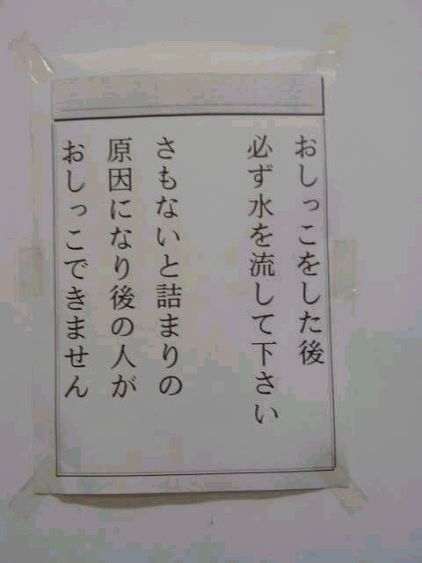 おしっこをした後
必ず水を流して下さい
さもないと詰まりの
原因になり後の人が
おしっこできません